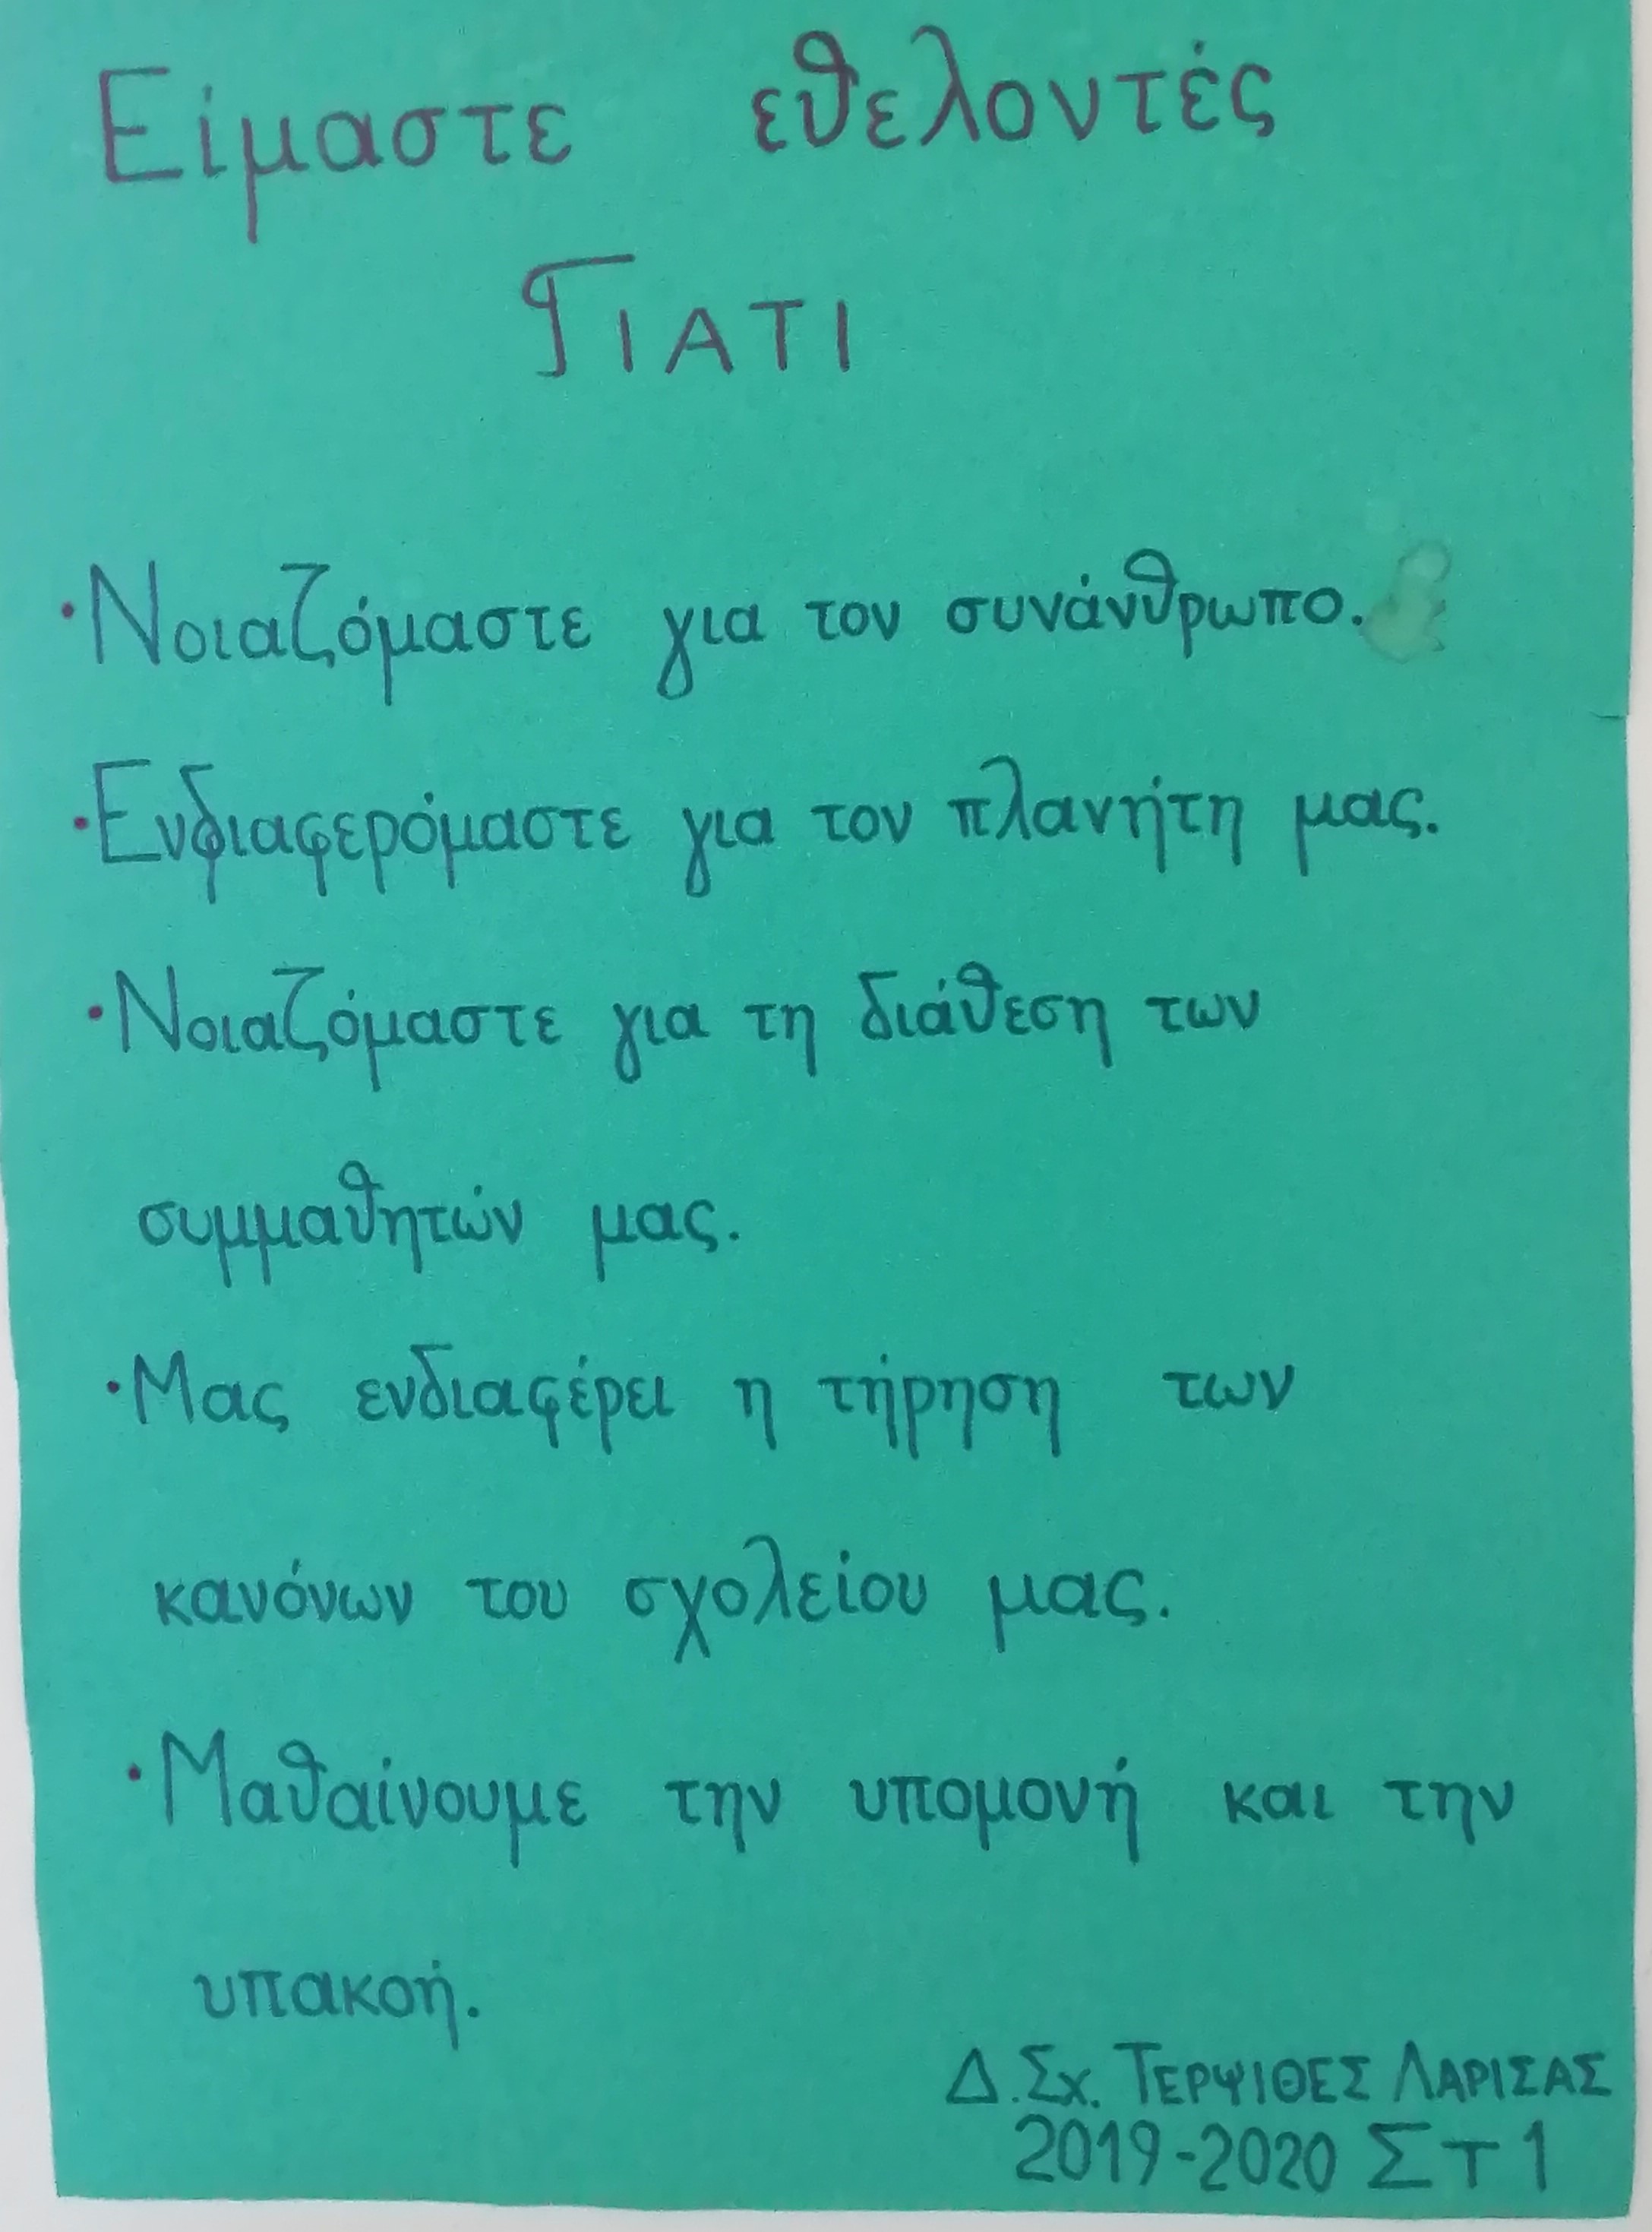 Είμαστε εθελοντές
ΓΙΑΤΙ
•Νοιαζόμαστε για τον συνάνθρωπο.
•Ενδιαφερόμαστε για τον πλανήτη μας.
•Νοιαζόμαστε για τη διάθεση των
συμμαθητών μας.
•Μας ενδιαφέρει η τήρηση των
κανόνων του σχολείου μας.
•Μαθαίνουμε την υπομονή και την
υπακοή.
Δ.Σχ. ΤΕΡΨΙΘΕΣ ΛΑΡΙΣΑΣ
2019-2020 ΣΤ1